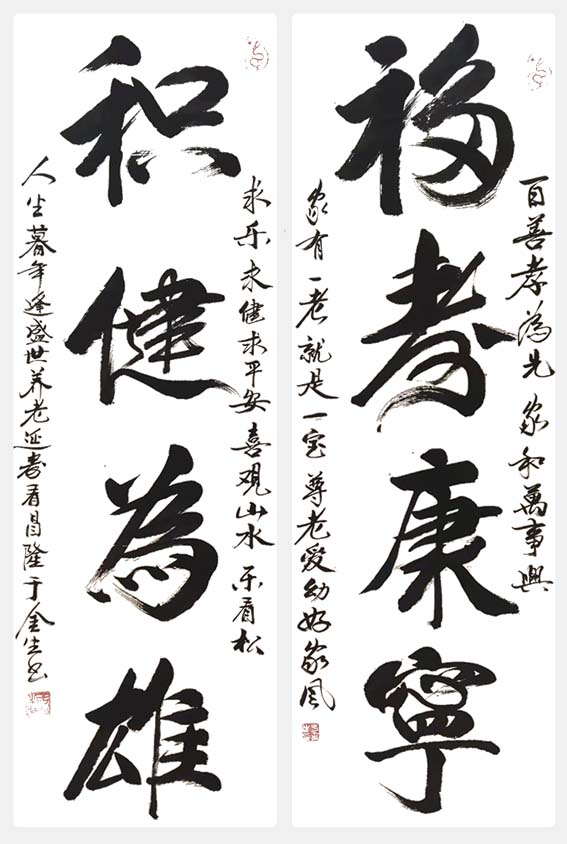 百善孝為先 家和萬事興
福寿康寧
家有一老就是一宝尊老爱幼好家风
求乐求健求平安喜观山水乐看松
积健為雄
人生暮年逢盛世养老延寿看昌隆于金生书